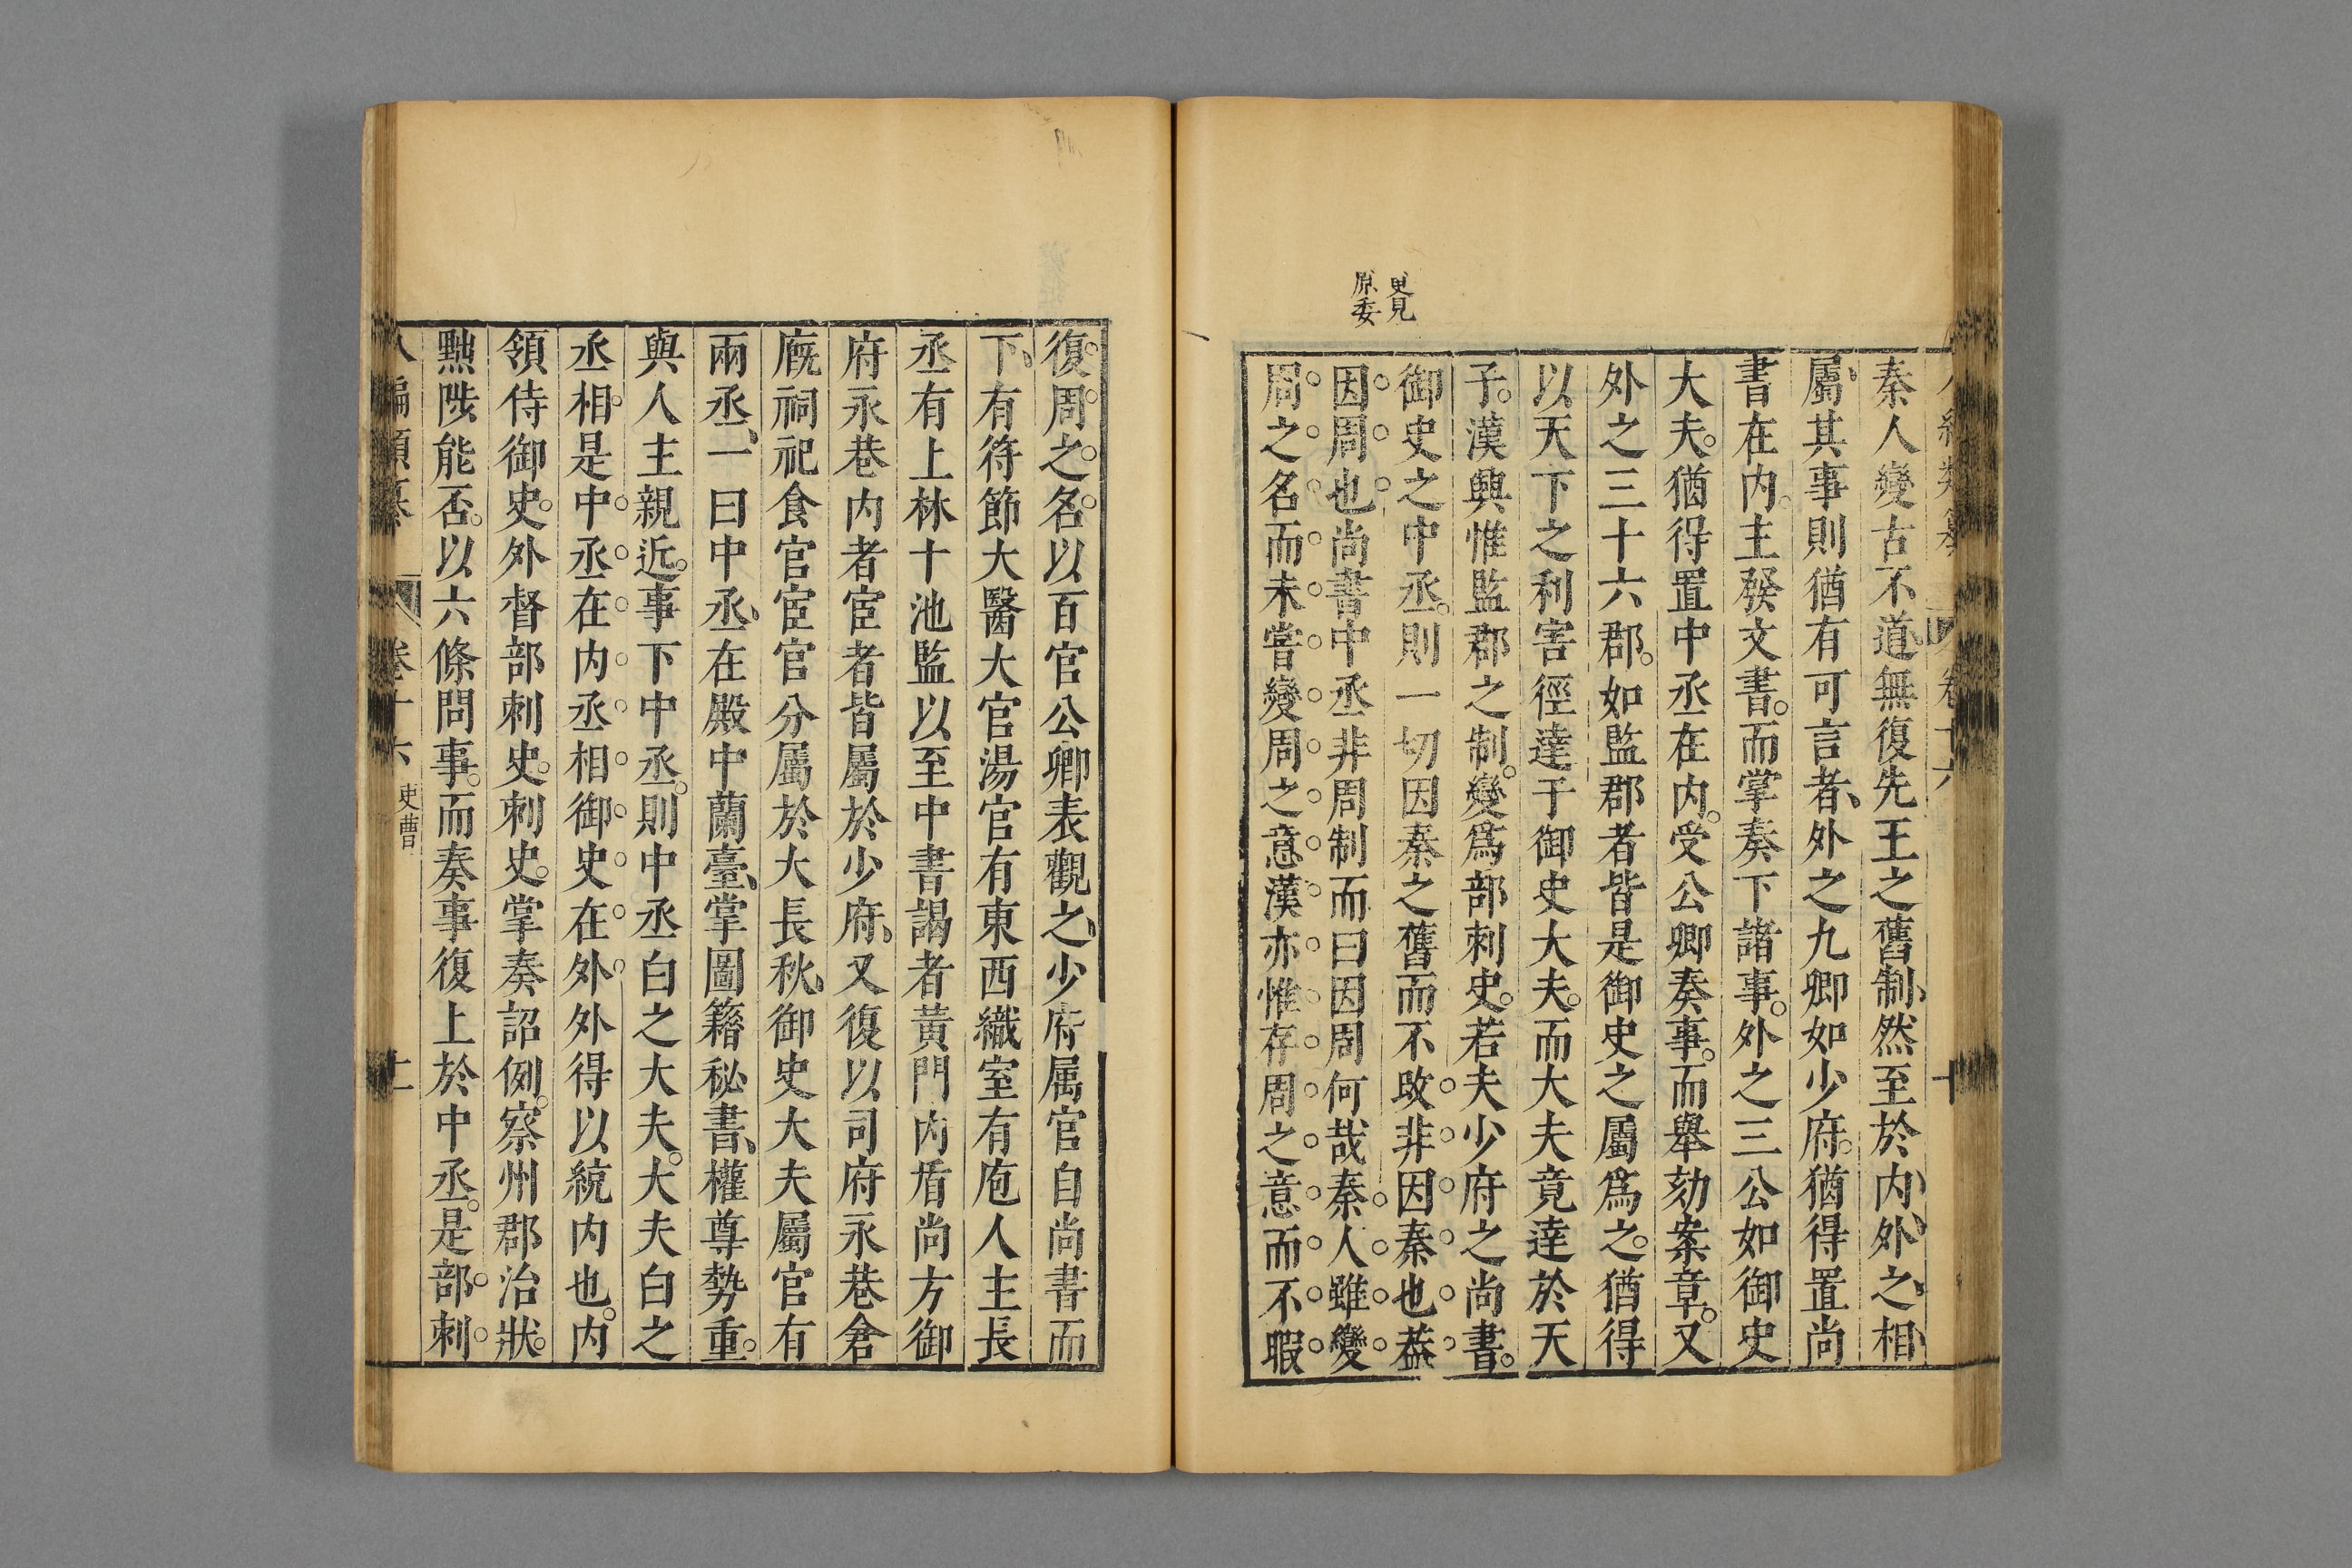 更見
原委
秦人變古不道無復先王之舊制然至於内外之相
屬其事則猶有可言者外之九卿如少府猶得置尚
書在内主發文書而掌奏下諸事外之三公如御史
大夫猶得置中丞在内受公卿奏事而舉劾案章又
外之三十六郡如監郡者皆是御史之屬爲之猶得
以天下之利害徑達于御史大夫而大夫竟達於天
子漢興惟監郡之制變爲部刺史若夫少府之尚書
御史之中丞則一切因秦之舊而不改非因秦也葢
因周也尚書中丞非周制而曰因周何哉秦人雖變
周之名而未嘗變周之意漢亦惟存周之意而不暇
復周之名以百官公卿表觀之少府属官自尚書而
下有符節大醫大官湯官有東西織室有庖人主長
丞有上林十池監以至中書謁者黃門内盾尚方御
府永巷内者宦者皆屬於少府又復以司府永巷倉
廐祠祀食官宦官分屬於大長秋御史大夫屬官有
兩丞一曰中丞在殿中蘭臺掌圖籍秘書權尊勢重
與人主親近事下中丞則中丞白之大夫大夫白之
丞相是中丞在内丞相御史在外外得以統内也内
領侍御史外督部刺史刺史掌奏詔例察州郡治狀
黜陟能否以六條問事而奏事復上於中丞是部刺
八編類纂 卷十六 史曹 十一